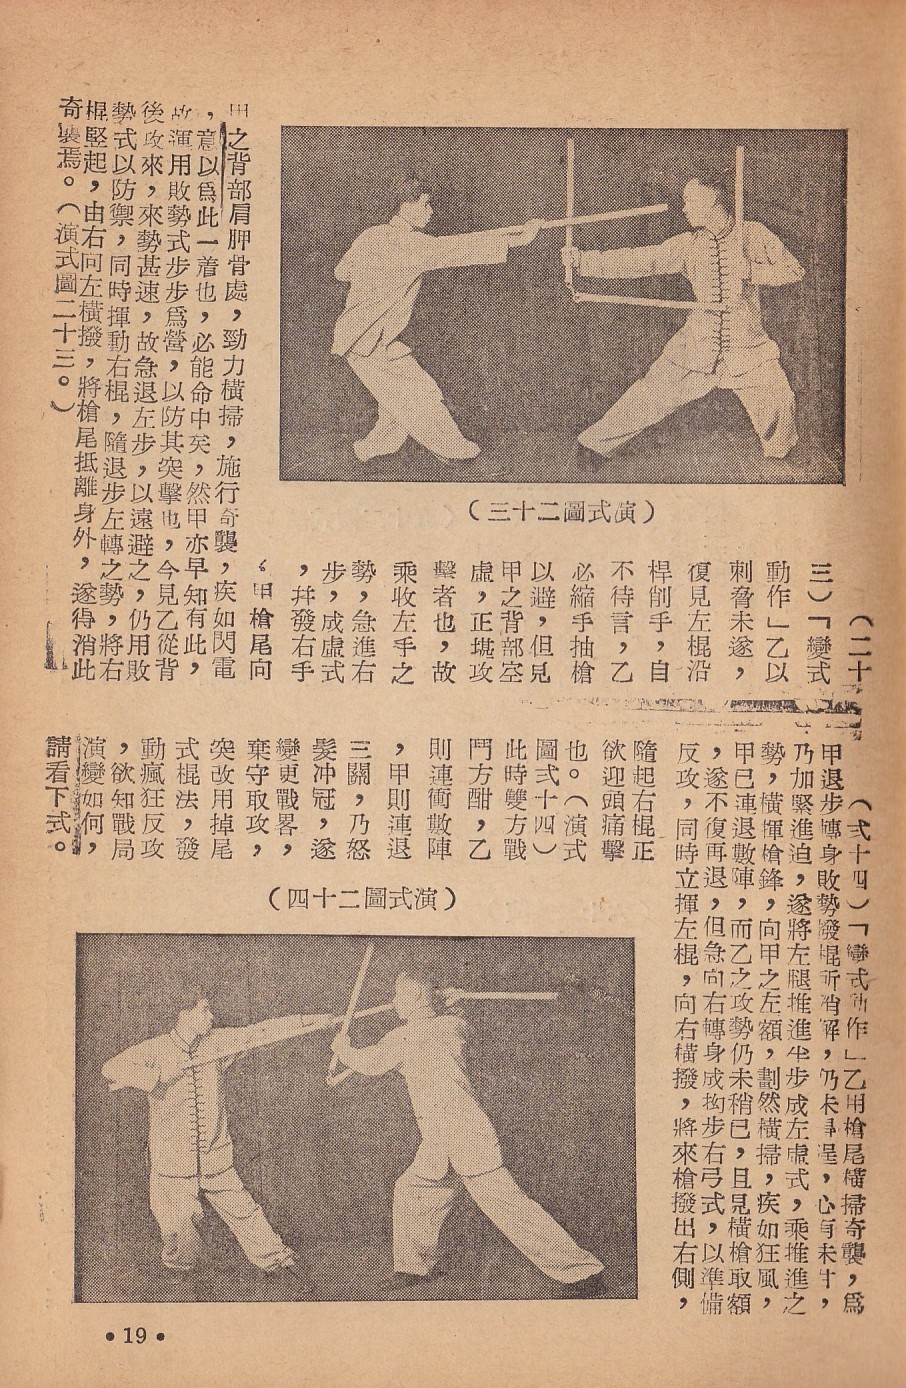 （演式圖二十三）
（二十
三）「變式
動作」乙以
刺脅未遂，
復見左棍沿
桿削手，自
不待言，乙
必縮手抽槍
以避，但見
甲之背部空
虛，正堪攻
擊者也，故
乘收左手之
勢，急進右
步，成虛式
，幷發右手
甲槍尾向
甲之背部肩胛骨處，勁力橫掃，施行奇襲，疾如閃電
，意以爲此一着也，必能命中矣，然甲亦早知有此，
故運用敗勢式步步爲營，以防其突擊也，今見乙從背
後攻來，來勢甚速，故急退左步，以遠避之，仍用敗
勢式以防禦，同時揮動右棍，隨退步左轉之勢，將右
棍竪起，由右向左橫撥，將槍尾抵離身外，遂得消此
奇襲焉。（演式圖二十三。）
（弍十四）「變式動作」乙用槍尾橫掃奇襲，爲
甲退步轉身敗勢發棍所消解，仍未得逞，心有未甘，
乃加緊進迫，遂將左腿推進半步成左虛式，乘推進之
勢，橫揮槍鋒，向甲之左額，劃然橫掃，疾如狂風，
甲已連退數陣，而乙之攻勢仍未稍已，且見橫槍取額
，遂不復再退，但急向右轉身成拗步右弓式，以準備
反攻，同時立揮左棍，向右橫撥，將來槍撥出右側，
隨起右棍正
欲迎頭痛擊
也。（演式
圖弍十四）
此時雙方戰
鬥方酣，乙
則連衝數陣
，甲則連退
三關，乃怒
髮冲冠，遂
變更戰畧，
棄守取攻，
突改用掉尾
式棍法，發
動瘋狂反攻
，欲知戰局
演變如何，
請看下式。
（演式圖二十四）
•19•